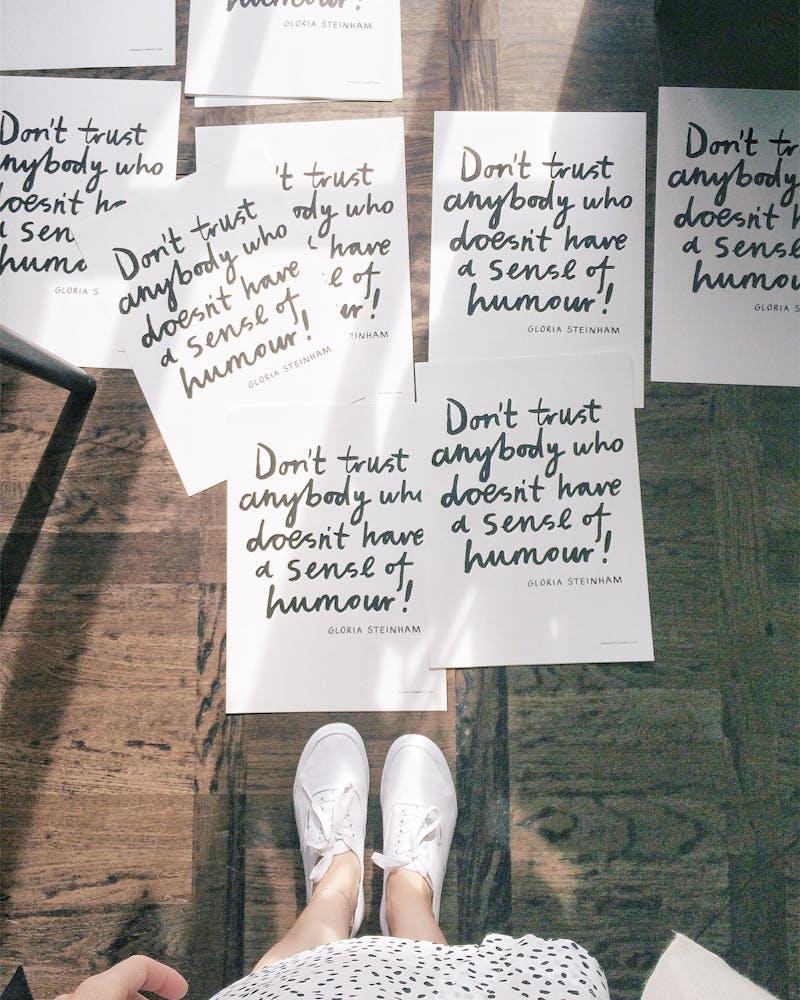 humour!
GLORIA STEINHAM
Don't trust
nybody who
doesn't ha
a sen
humo
GLORIA S
't trust
ody who
have
e of
ur!
EINHAM
Don't trust
anybody who
doesn't have
a sense of
humour!
GLORIA STEINHAM
Don't trust
anybody who
doesn't have
a sense of
humour!
GLORIA STEINHAM
Don't tr
anybody
doesn't h
a sens
humou
GLORIA S
Don't trust
anybody who
doesn't have
a sense of
humour!
GLORIA STEINHAM
Don't trust
anybody who
doesn't have
a sense of
humour!
GLORIA STEINHAM